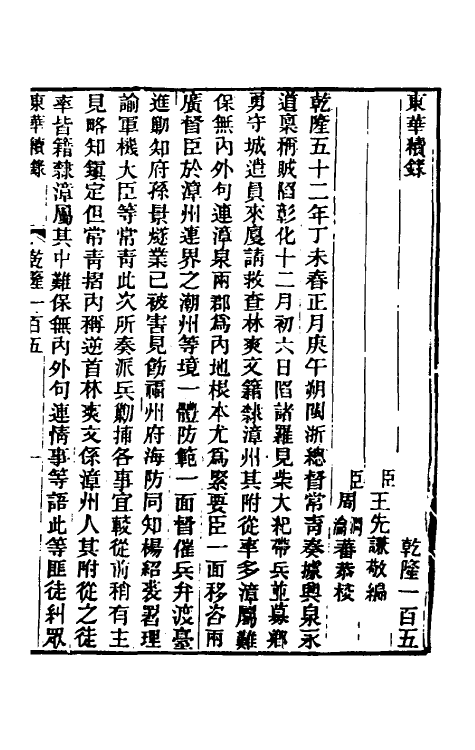 東華續錄　乾隆一百五
臣王先謙敬編
臣周潤蕃瀹蕃恭校
乾隆五十二年丁未春正月庚午朔閩浙總督常青奏據興泉永
道稟稱賊陷彰化十二月初六日陷諸羅見柴大紀帶兵並募鄉
勇守城遣員來廈請救查林爽文籍隸漳州其附從率多漳屬難
保無內外句連漳泉兩郡爲內地根本尤爲緊要臣一面移咨兩
廣督臣於漳州連界之潮州等境一體防範一面督催兵弁渡臺
進勦知府孫景燧業已被害見飭福州府海防同知楊紹裘署理
諭軍機大臣等常青此次所奏派兵勦捕各事宜較從前稍有主
見略知鎮定但常青摺內稱逆首林爽文係漳州人其附從之徒
率皆籍隸漳屬其中難保無內外句連情事等語此等匪徒糾眾
東華續錄　乾隆一百五　一